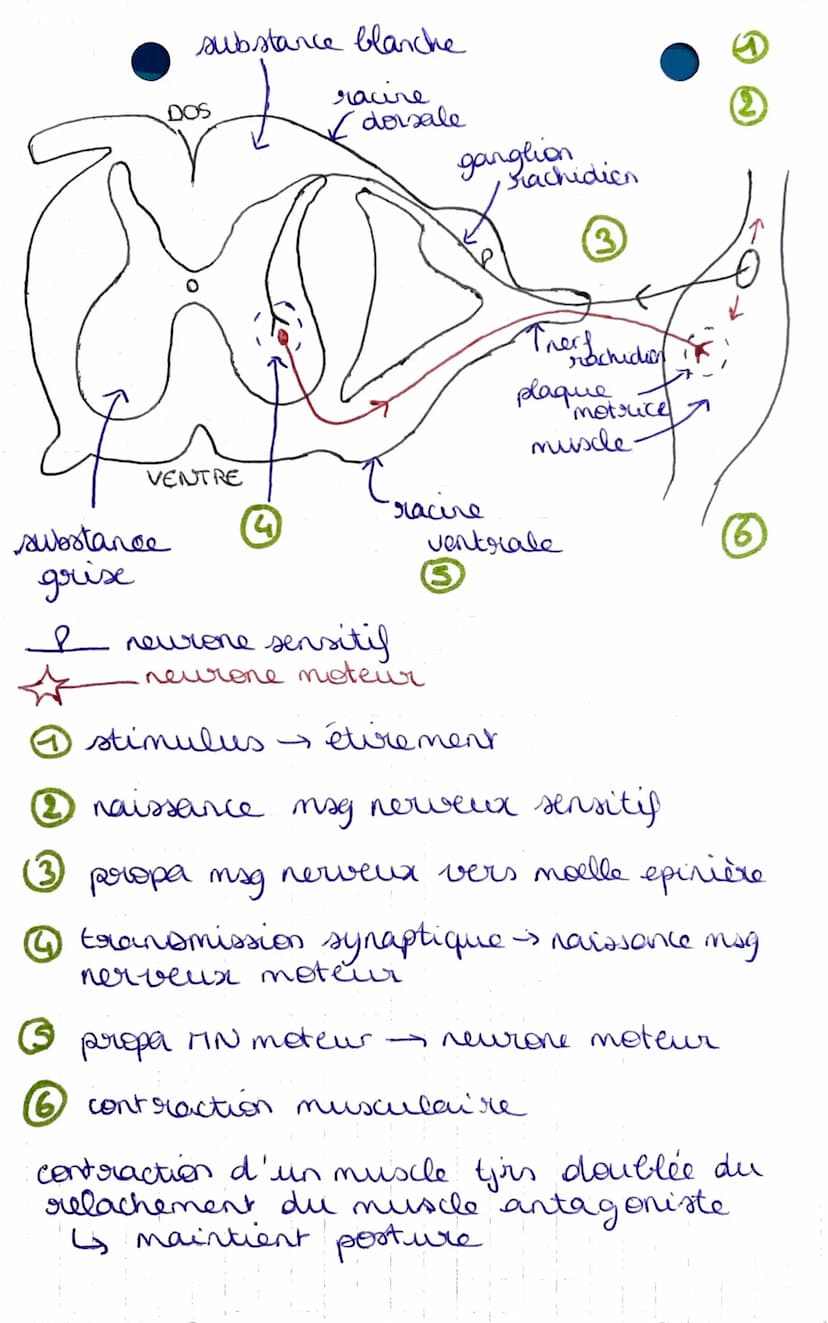 substance blanche
①
②
racine
dorsale
DOS
ganglion
rachidien
③
nerf
rachidien
plaque
motrice
muscle
VENTRE
④
racine
ventrale
⑤
⑥
substance
grise
neurone sensitif
neurone moteur
① stimulus → étirement
② naissance msg nerveux sensitif
③ propa msg nerveux vers moelle epinière
④ transmission synaptique → naissance msg
nerveux moteur
⑤ propa MN moteur → neurone moteur
⑥ contraction musculaire
contraction d'un muscle tjrs doublée du
relachement du muscle antagoniste
↳ maintient posture